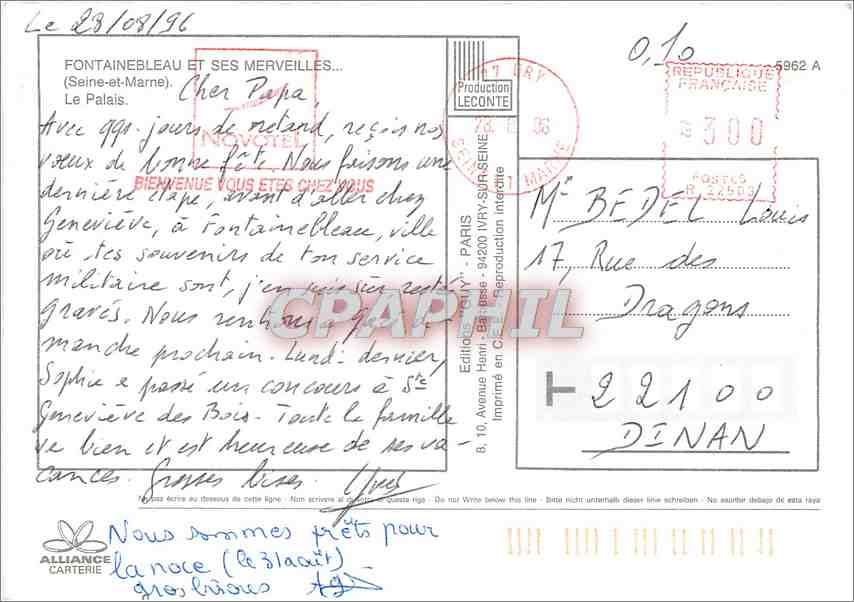 Le 28/08/96
FONTAINEBLEAU ET SES MERVEILLES...
(Seine-et-Marne).
Le Palais.
Cher Papa,
NOVOTEL
BIENVENUE VOUS ETES CHEZ NOUS
Avec qqs. jours de retard, reçois nos
vœux de bonne fête. Nous faisons une
dernière étape, avant d'aller chez
Geneviève, à Fontainebleau, ville
où tes souvenirs de ton service
militaire sont, j'en suis sûr, restés
gravés. Nous rentrons di-
manche prochain. Lundi dernier,
Sophie a passé un concours à Ste
Geneviève des Bois. Toute la famille
va bien et est heureuse de ses va-
cances. Grosses bises. Yves
Nous sommes prêts pour
la noce (le 31 août)
gros bisous
Production
LECONTE
77 GRY
SEINE ET MARNE
0,10
5962 A
REPUBLIQUE
FRANÇAISE
300
POSTES
Editions "GUY" - PARIS
8, 10, Avenue Henri - Barbusse - 94200 IVRY-SUR-SEINE
Imprimé en C.E.E. Reproduction interdite
Mr BEDEL Louis
17, Rue des
Dragons
22100
DINAN
CPAPHIL
Ne pas écrire au dessous de cette ligne - Non scrivere al di sotto di questa riga - Do not Write below this line - Bitte nicht unterhalb dieser linie schreiben - No escribir debajo de esta raya
ALLIANCE
CARTERIE